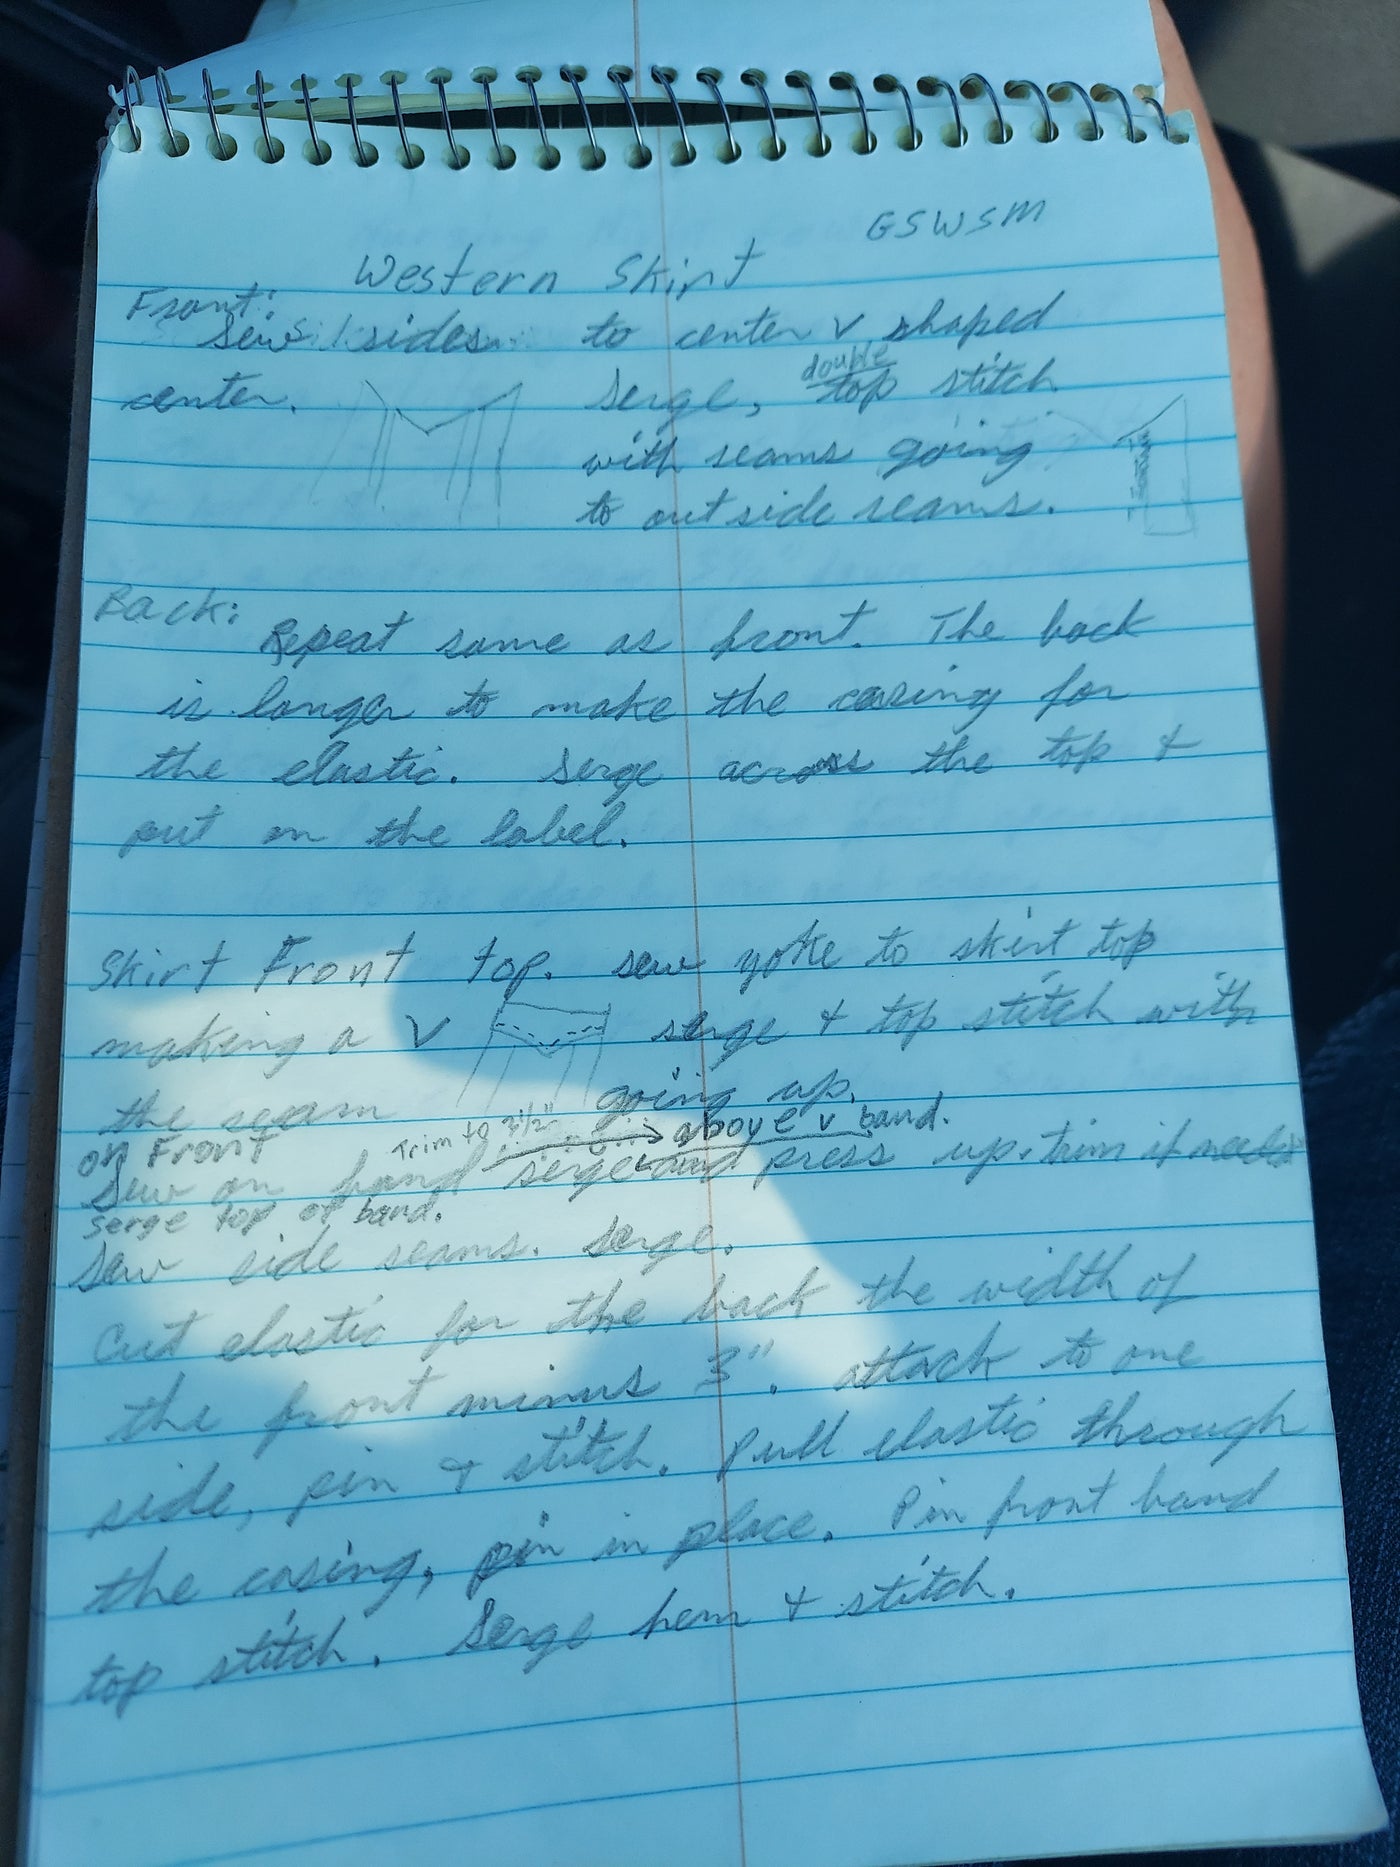 GSWSM
Western Skirt
Front:
Sew sides to center V shaped
center. Serge, double top stitch
with seams going
to outside seams.
Back:
Repeat same as front. The back
is longer to make the casing for
the elastic. Serge across the top &
put on the label.
Skirt Front top. sew yoke to skirt top
making a V serge & top stitch with
the seam going up.
on Front Trim to 3½" above v band.
Sew on band serge and press up. trim if needed
serge top of band.
Sew side seams. Serge.
Cut elastic for the back the width of
the front minus 3". attack to one
side, pin & stitch. Pull elastic through
the casing, pin in place. Pin front band
top stitch. Serge hem & stitch.